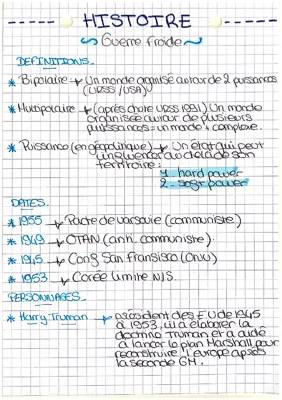 HISTOIRE
Guerre froide
DEFINITIONS.
* Bipolaire → Un monde organisé autour de 2 puissances
(URSS/USA)
* Multipolaire → (après chute URSS 1991) Un monde
organisée autour de plusieurs
puissances = un monde + complexe.
* Puissance (en géopolitique) → Un état qui peut
influencer au delà de son
territoire:
1. hard power
2. soft power
DATES.
* 1955 → Pacte de varsovie (communiste)
* 1949 → OTAN (anti communiste).
* 1945 → Conf San Fransisco (ONU)
* 1953 → Corée limite N/S.
PERSONNAGES.
* Harry Truman → président des EU de 1945
à 1953, il a élaborer la
doctrine Truman et a aidé
à lancer le plan Marshall pour
reconstruire l'europe après
la seconde GM.